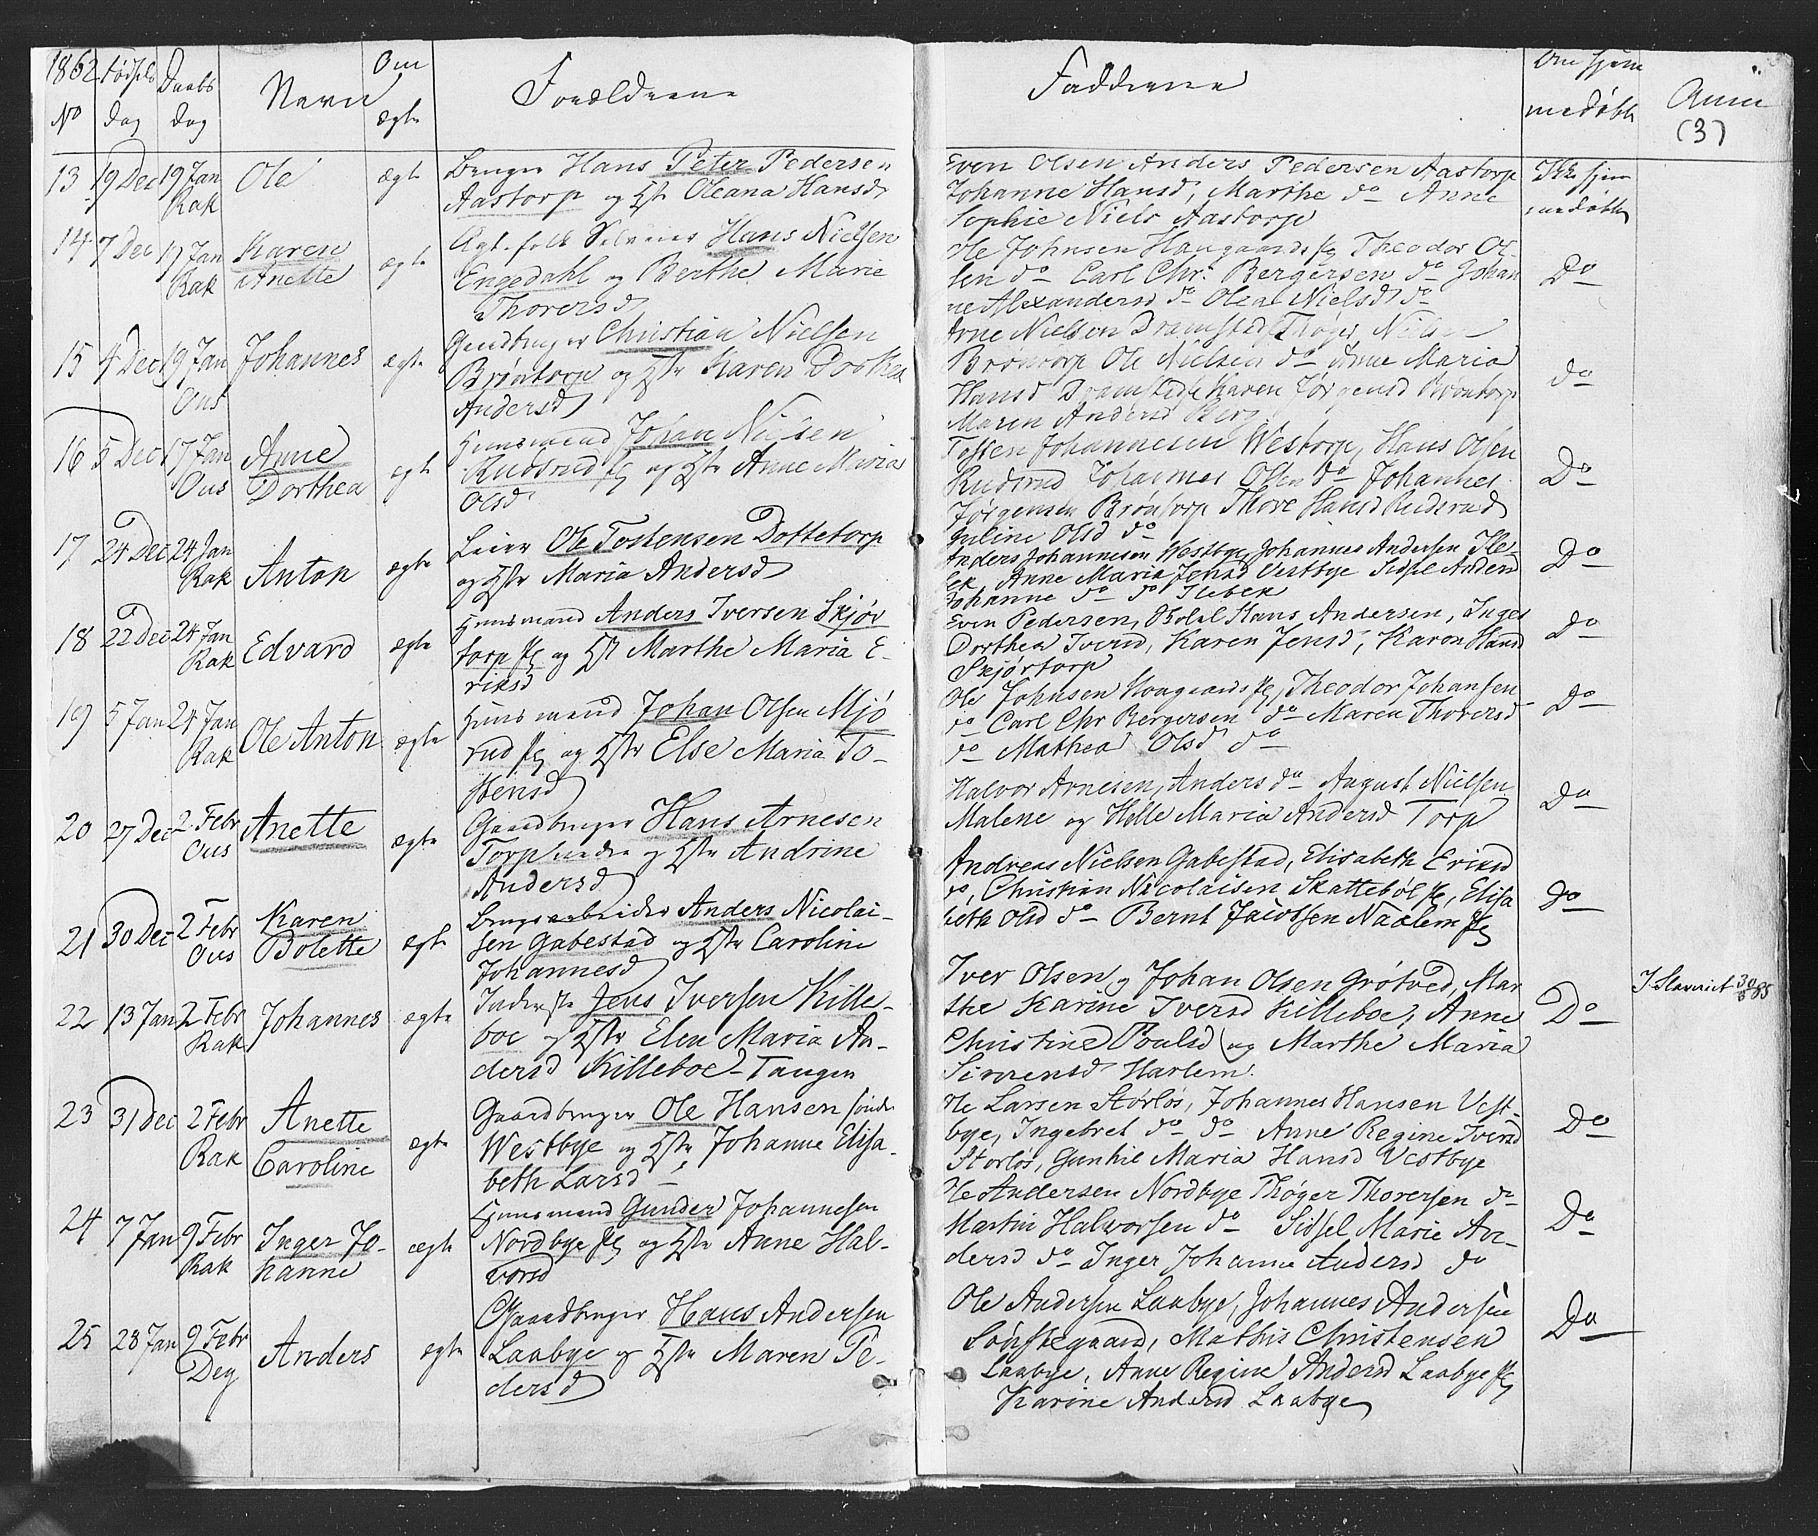 1862 Fødsels Daabs Navn Om Forældrene Faddrene Om hjem Anm
No dag dag ægte medøbt (3)
13 19 Dec 19 Jan Rak Ole ægte Bruger Hans Peter Pedersen
Aastorp og Hstr Oleana Hansd
Even Olsen Anders Pedersen Aastorp
Johanne Hansd, Marthe do Anne
Sophie Niels Aastorp
Ikke hjem
medøbt
14 7 Dec 19 Jan Rak Karen Anette ægte Hans Nielsen
Engedahl og Berthe Marie
Thoresd
Ole Johnsen Haugaards Theodor Ol
sen do Carl Chr. Bergersen do Johan
ne Alexandersd do Olea Nielsd do
Do
15 4 Dec 19 Jan Ous Johannes ægte Gaardbruger Christian Nielsen
Brøntorp og Hstr Karen Dorthea
Andersd
Arne Nielsen Dramsted Thøger Niels
Brøntorp Ole Nielsen do Anne Maria
Hansd Dramsted Karen Jørgensd Brøntorp
Maren Andersd Berg
do
16 5 Dec 17 Jan Ous Anne Dorthea ægte Huusmand Johan Nielsen
Rudsrud og Hstr Anne Maria
Olsd
Tosten Johannesen Westorp, Hans Olsen
Rudsrud Johannes Olsen do Johannes
Jørgensen Brøntorp Thore Hansd Rudsrud
Juline Olsd do
Do
17 24 Dec 24 Jan Rak Anton ægte Leier Ole Tostensen Dottetorp
og Hstr Maria Andersd
Anders Johannesen Westbye Johannes Andersen Ile-
bek, Anne Maria Jensd Vestbye Sidsel Andersd
Johanne do do Ilebek
Do
18 22 Dec 24 Jan Rak Edvard ægte Huusmand Anders Iversen Skjør
torp og Hstr Marthe Maria E-
riksd
Even Pedersen, Hans Andersen, Inger
Dorthea Iversd, Karen Jensd, Karen Hansd
Skjørtorp
Do
19 5 Jan 24 Jan Rak Ole Anton ægte Huusmand Johan Olsen Mjø
rud og Hstr Else Maria To-
stensd
Ole Johnsen Haugaards, Theodor Johansen
do Carl Chr Bergersen do Maren Thoresd
do Mathea Olsd do
Do
20 27 Dec 2 Febr Ous Anette ægte Gaardbruger Hans Arnesen
Torp nedre og Hstr Andrine
Andersd
Halvor Arnesen, Anders do August Nielsen
Malene og Helle Maria Andersd Torp
Do
21 30 Dec 2 Febr Ous Karen Bolette ægte Brugsarbeider Anders Nicolai-
sen Gabestad og Hstr Caroline
Johannesd
Andreas Nielsen Gabestad, Elisabeth Eriksd
do, Christian Nicolaisen Skattebøl, Elisa
beth Olsd do Bernt Jacobsen Naclem
Do
22 13 Jan 2 Febr Rak Johannes ægte Inderste Jens Iversen Kille-
boe og Hstr Elen Maria An-
dersd Killeboe-Tangen
Iver Olsen og Johan Olsen Grøtved, Mar
the Karine Iversd Killeboe, Anne
Christine Poulsd og Marthe Maria
Sørensd Harlem.
Do
23 31 Dec 2 Febr Rak Anette Caroline ægte Gaardbruger Ole Hansen søndr
Westbye og Hstr Johanne Elisa-
beth Larsd
Ole Larsen Størløs, Johannes Hansen Vest-
bye, Ingebret do do Anne Regine Iversd
Størløs, Gunhil Maria Hansd Vestbye
Do
24 7 Jan 9 Febr Rak Inger Jo- hanne ægte Huusmand Gunder Johannesen
Nordbye og Hstr Anne Hal-
vorsd
Ole Andersen Nordbye Thøger Thoresen do
Martin Halvorsen do Sidsel Marie An-
dersd do Inger Johanne Andersd do
Do
25 28 Jan 9 Febr Deg Anders ægte Gaardbruger Hans Andersen
Laabye og Hstr Maren Pe-
dersd
Ole Andersen Laabye, Johannes Andersen
Sønstegaard, Mathis Christensen
Laabye, Anne Regine Andersd Laabye
Karine Andersd Laabye
Do